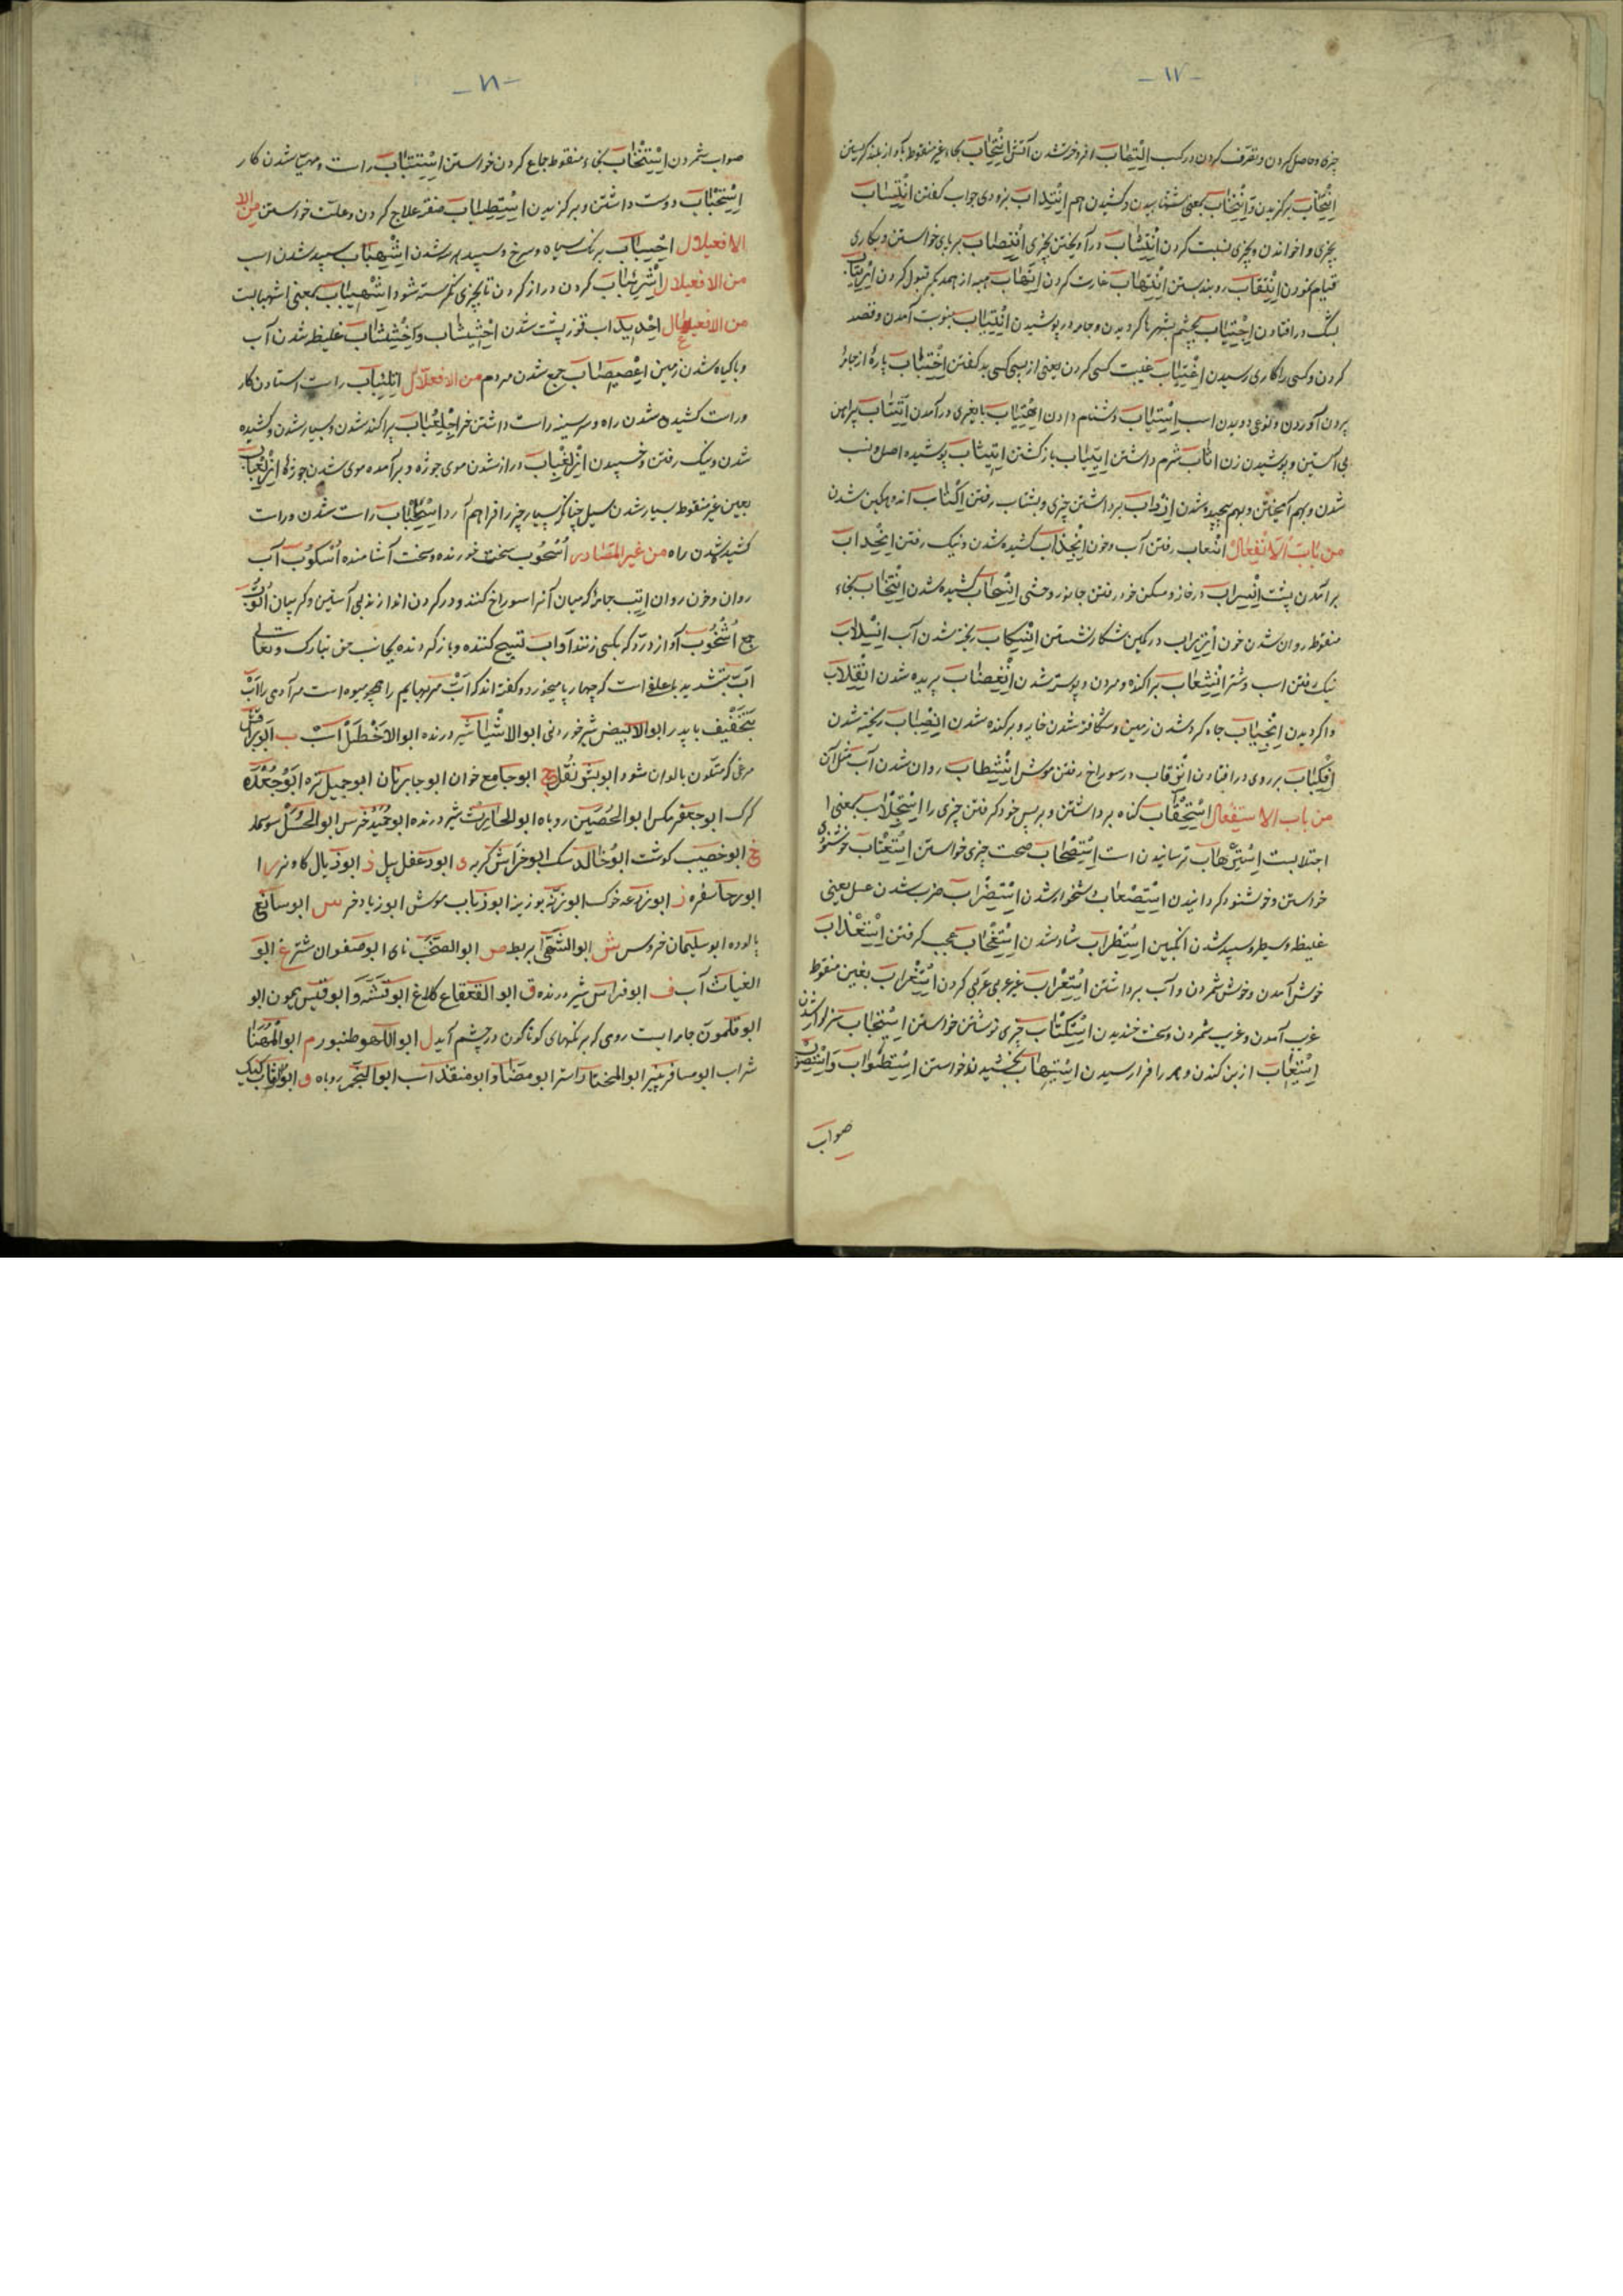 - ۱۷ -
چیزی و حاصل کردن و تصرف کردن در کسب اِلْتِهٰاب افروخته شدن آتش اِنْتِحٰاب بحاء غیر منقوط بآواز بلند گریستن
اِنْتِخٰاب برگزیدن و اِنْتِخٰاب بمعنی شتابیدن و کشیدن هم اِنْتِداب بزودی جواب گفتن اِنْتِسٰاب
بچیزی واخواندن و بچیزی نسبت کردن اِنْتِشٰاب درآویختن بچیزی اِنْتِصٰاب برپای خواستن و بکاری
قیام نمودن اِنْتِقٰاب روبند بستن اِنْتِهٰاب غارت کردن اِتّهٰاب هبه از همدیگر قبول کردن اِرْتِیٰاب
بشک درافتادن اِجْتِیٰاب بچشم بشهرها گردیدن و جامه درپوشیدن اِنْتِیٰاب بنوبت آمدن و قصد
کردن و کسی را کاری رسیدن اِغْتِیٰاب غیبت کسی کردن یعنی از پس کسی بد گفتن اِخْتِبٰاب پارهٔ از جامه
بیرون آوردن و نوعی دویدن اسب اِسْتِبٰاب دشنام دادن
بی آستین و پوشیدن زن اتّٰاب شرم داشتن اِیتِیٰاب بازگشتن
شدن و بهم آمیختن و بهم پیچیده شدن برداشتن چیزی و بشتاب رفتن اِکْتِئٰاب اندوهگین شدن
من بٰاب الْاِنْفِعٰال انْثعاب رفتن آب و خون اِنْجِذٰاب کشیده شدن و نیک رفتن اِنْحِداب
برآمدن پشت اِنْسِراب در خانه و مسکن خود رفتن جانور وحشی اِنْسِحٰاب کشیده شدن اِنْشِخٰاب بخاء
منقوط روان شدن خون اِنْزِراب در کمین شکار نشستن اِنْسِکٰاب ریخته شدن آب اِنْسِلاب
نیک رفتن اسب و شتر اِنْشِعٰاب پراکنده و مردن و پوسته شدن اِنْقِضٰاب بریده شدن اِنْقِلاب
واگردیدن اِنْجِیٰاب چاه کرده شدن زمین و شکافته شدن جامه و برکنده شدن اِنْصِبٰاب ریخته شدن
اِنْکِبٰاب بر روی درافتادن اِنْوِقاب در سوراخ رفتن موش اِنْشِطاب روان شدن آب مثل آن
من باب الاستِفْعال اِسْتِحْقٰاب گناه برداشتن و برپس خود گرفتن چیزی را اِسْتِجْلاب بمعنی ا
اجتلابست اِسْتِرْهٰاب ترسانیدن است اِسْتِصْحٰاب صحبت چیزی خواستن اِسْتِعْتٰاب خوشنودی
خواستن و خوشنود گردانیدن اِسْتِصْعٰاب دشخوار شدن اِسْتِضْراب ضرب شدن عسل یعنی
غلیظ و سطبر و سپید شدن انگبین اِسْتِطْراب شاد شدن اِسْتِعْجٰاب عجب گرفتن اِسْتِعْذاب
خوش آمدن و خوش شمردن و آب برداشتن اِسْتِعْراب غیر عربی عربی کردن اِسْتِغْراب بغین منقوط
غریب آمدن و غریب شمردن و سخت خندیدن اِسْتِکْتٰاب چیزی نوشتن خواستن اِسْتِیجٰاب سزاوار شدن
اِسْتِیعٰاب از بن کندن و همه را فرا رسیدن اِسْتِیهٰاب بخشیدن خواستن اِسْتِطْواب وَ اِسْتِصْواب
صواب
- ۱۸ -
صواب شمردن بخاء منقوط جماع کردن خواستن اِسْتِتْبٰاب راست و مهیا شدن کار
اِسْتِحْبٰاب دوست داشتن و برگزیدن اِسْتِطْبٰاب صفت علاج کردن و علت خواستن
الافعیلال برنگ سیاه و سرخ و سپید شدن اِشْهِبٰاب سپید شدن اسب
من الافعیلال اِشْرِئْبٰاب گردن دراز کردن تا بچیزی نگرسته شود اِشْهِیبٰاب بمعنی اشهبابست
من الافعیعال اِحْدِیداب قوز پشت شدن اِخْشِیشٰاب غلیظ شدن آب
و با گیاه شدن زمین اِعْصِیصٰاب جمع شدن مردم من الافعلّال اِتْلِئْبٰاب راست استادن کار
و راست کشیدن شدن راه و سر سینه راست داشتن خر اِجْلِعْبٰاب پراکنده شدن و بسیار شدن و کشیده
شدن و نیک رفتن و خسپیدن اِزْلِغْبٰاب دراز شدن موی جوژه و برآمده موی شدن جوژه اِزْلِعْبٰاب
بعین غیر منقوط بسیار شدن سیل چنانکه بسیار چیز را فراهم آرد راست شدن و راست
کشیده شدن راه من غیر المصادر اُسْحُوب سخت خورنده و سخت آشامنده اُسْکوُب آب
روان و خون روان اِتِب جامهٔ که میان آنرا سوراخ کنند و در گردن اندازند بی آستین و گریبان
جمع اُشْخُوب آواز درّد که بکسی زنند اَوّاب تسبیح کننده و باز گردنده بجانب حق تبارک و تعالی
اَبّ بتشدید با علفی است که چهارپا میخورد و گفته اند که اَبّ مر بهایم را همچو میوه است مر آدمی را اَبْ
بتخفیف با پدر ابوالابیض شیر خوردنی ابوالاشبٰال شیر درنده ابوالاخطل اسب ب ابو براقش
مرغی که متلون بالوان شود ابو ثقل ج ابو جامع خوان ابو جابر نان ابو جمیل تره ابو جعده
گرگ ابو جعفر مگس ابوالحصین روباه ابوالحارث شیر درنده ابو حمید خرس ابوالحسل سوسمار
خ ابو خصیب گوشت ابو خالد سگ ابو خراش گربه د ابو دغفل پیل ذ ابو ذیال گاو نر ر ا
ابو رجا سفره ز ابو زرعه خوک ابو زنّه بوزینه ابو زباب موش ابو زیاد خر س ابو سائغ
پالوده ابو سلیمان خروس ش ابوالشهی بربط ص ابوالصخب نای ابو صفوان شتر غ ابو
الغیاث آب ف ابو فراس شیر درنده ق ابو القعقاع کلاغ ابو قشّه و ابو قیس میمون ابو
ابو قلمون جامه ایست رومی که برنگهای گوناگون در چشم آید ل ابو اللهو طنبور م ابو المهنا
شراب ابو مسافر پنیر ابو المختار استر ابو مضا و ابو منقذ اسب ابو النجم روباه و ابو وثاب کیک